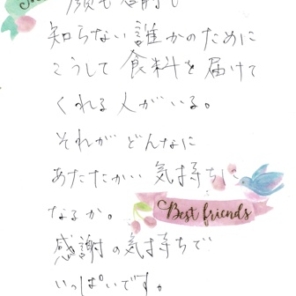 顔も名前も
知らない誰かのために
こうして食料を届けて
くれる人がいる。
それがどんなに
あたたかい気持ちに
なるか。
Best friends
感謝の気持ちで
いっぱいです。